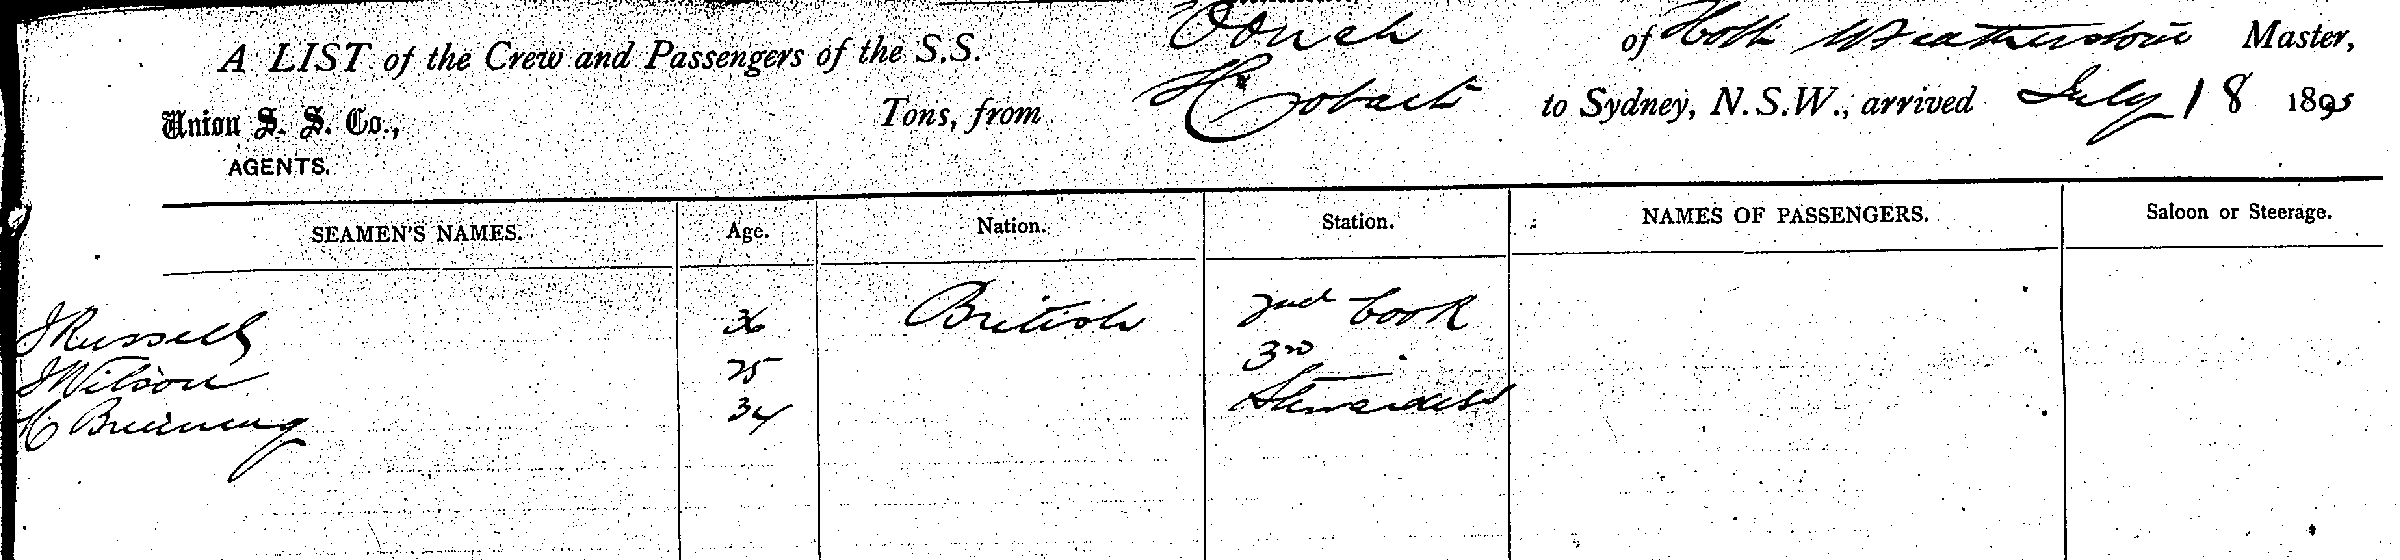 A LIST of the Crew and Passengers of the S.S. of Weatherstone Master,
Union S. S. Co., Tons, from Hobart to Sydney, N.S.W., arrived July 18 1895
AGENTS.
SEAMEN'S NAMES. Age. Nation. Station. NAMES OF PASSENGERS. Saloon or Steerage.
J Russell 36 British 2nd Cook
J Wilson 25 3rd
34 Stewardess